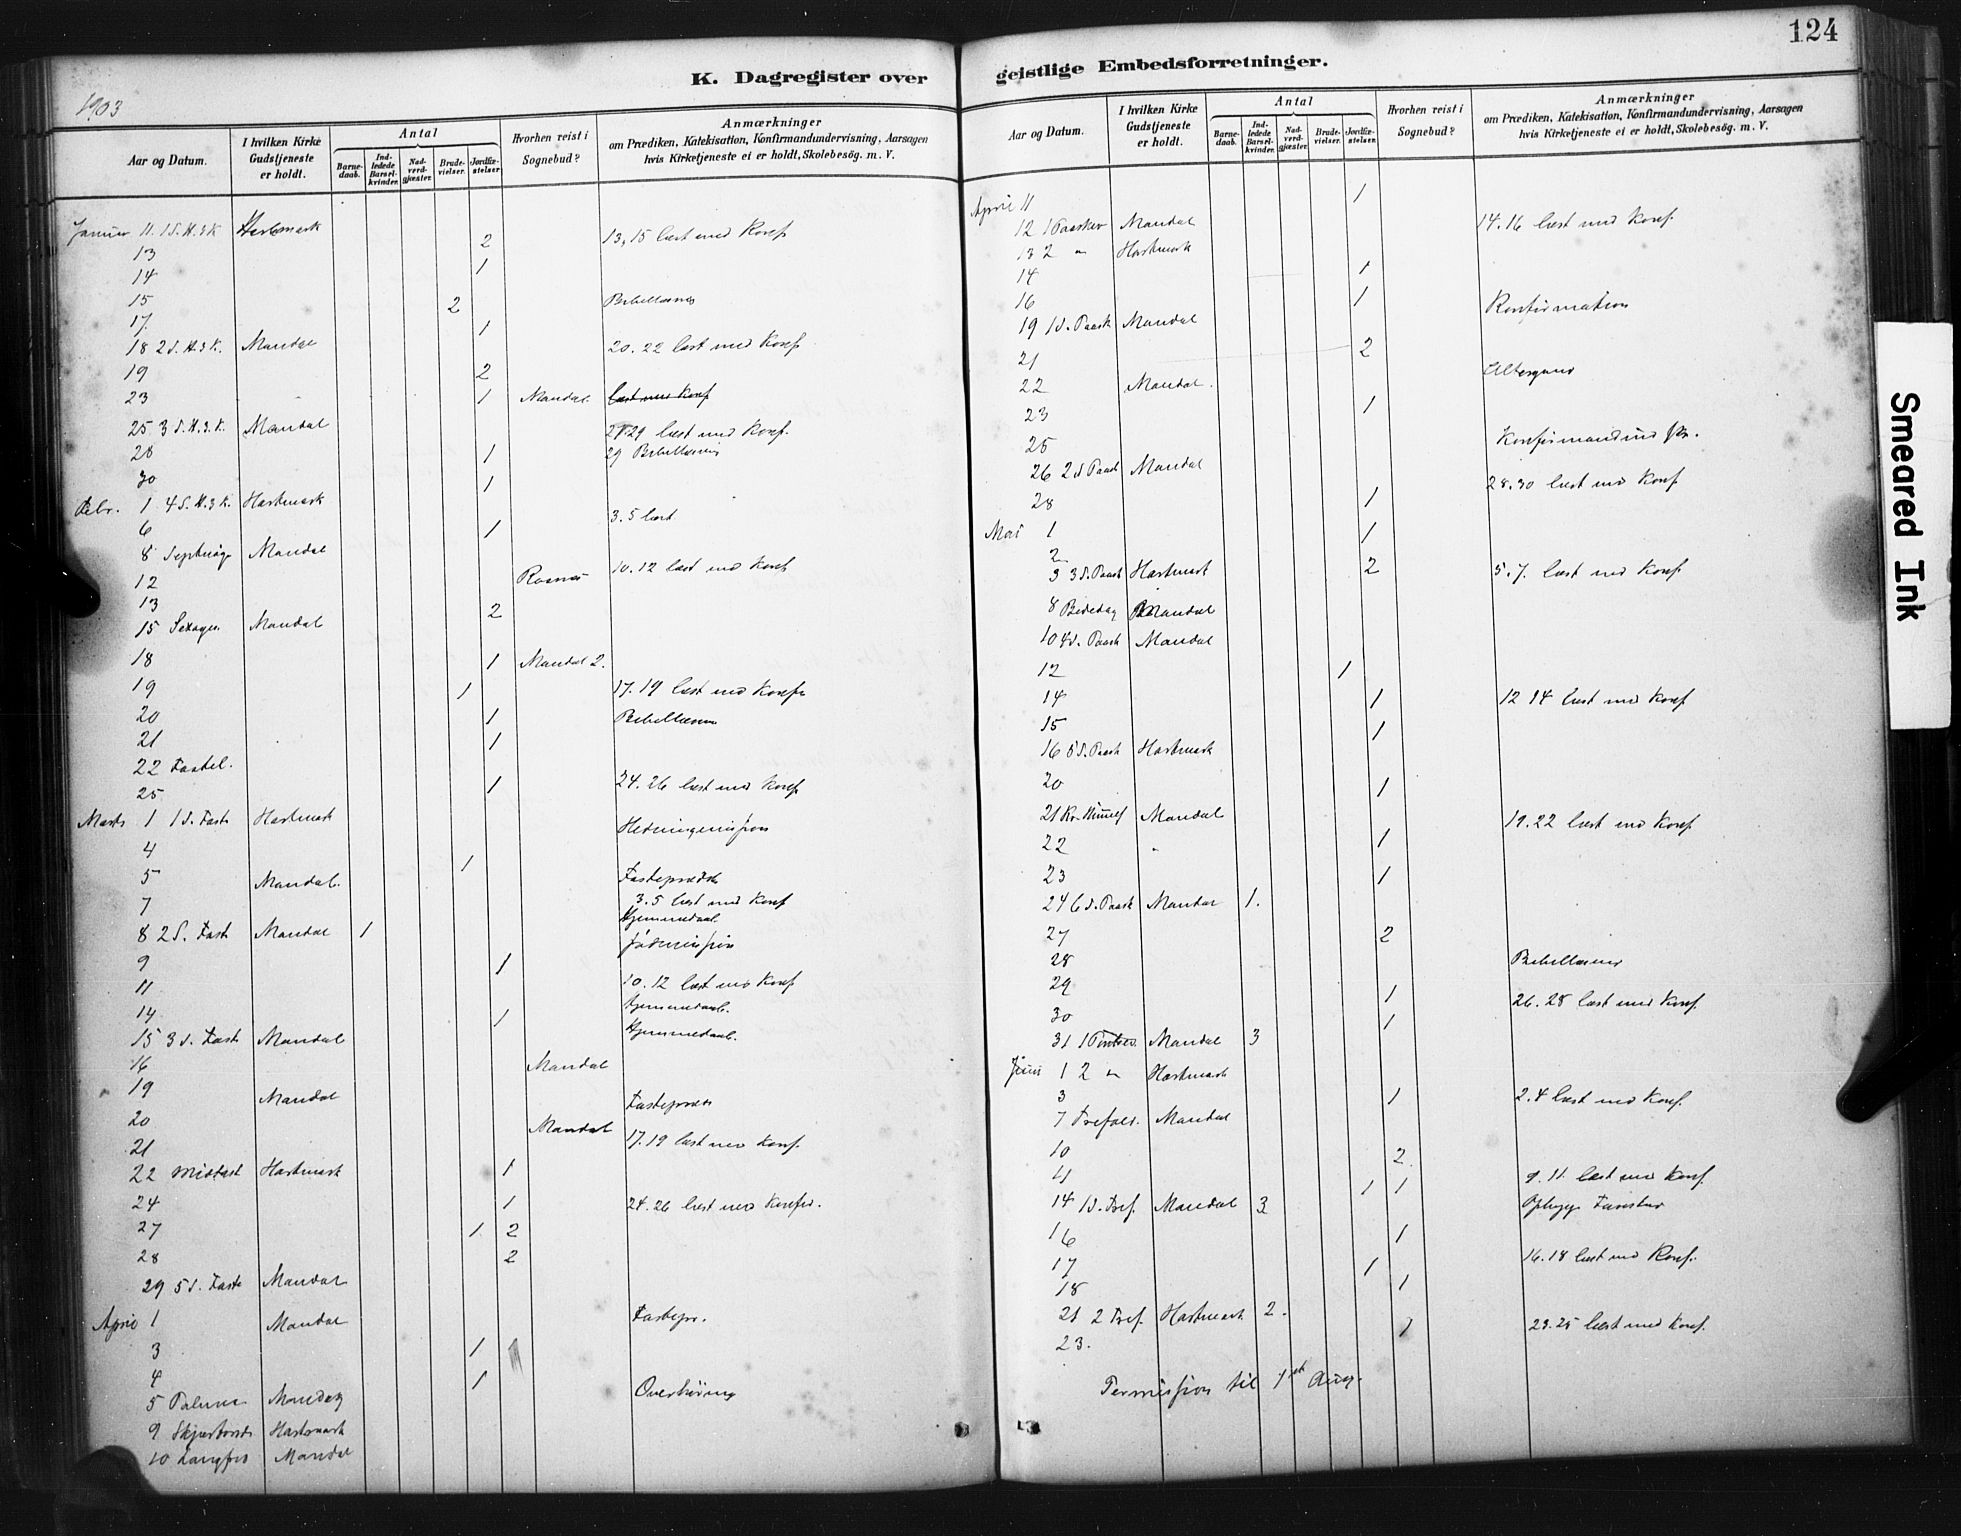 124
K. Dagregister over geistlige Embedsforretninger.
1903
Aar og Datum. I hvilken Kirke Gudstjeneste er holdt. Antal Barnedaab. Indledede Barselkvinder. Nadverdgjæster. Brudevielser. Jordfæstelser. Hvorhen reist i Sognebud? Anmærkninger om Prædiken, Katekisation, Konfirmandundervisning, Aarsagen hvis Kirketjeneste ei er holdt, Skolebesög. m. V.
Januar 11. 1 S. H. 3 K Hartmark 2 13, 15 læst med Konf
13 1
14
15 2 Bibellæsning
17. 1
18 2 S. H. 3 K. Mandal 20. 22 læst med Konf
19 2
23 1 Mandal. læst med Konf
25 3 S. H. 3. K. Mandal 27. 29 læst med Konf.
28 1 29 Bibellæsning
30 1
Febr. 1 4 S. H. 3 K. Hartmark 3. 5 læst
6 1
8 Septuag Mandal 10. 12 læst med Konf
12
13 2
15 Sexages. Mandal
18 1 Mandal 2.
19 1 17. 19 læst med Konf
20 1 Bibellæsn
21 1
22 Fastel.
25 1 24. 26 læst med Konf
Marts 1 1 S. Fast Hartmark Hedningemission
4 1
5 Mandal. Fastepræd
7 3. 5 læst med Konf
Hjemmedaab.
8 2 S. Fast Mandal 1 Jødemission
9 1
11 10. 12 læst med Konf
14 1 Hjemmedaab.
15 3 S. Fast Mandal Hjemmedaab.
16 Mandal
19 Mandal Fastepræd
20 Mandal
21 17. 19 læst med Konf.
22 Midfast Hartmark 1
24 1 24. 26 læst med Konf.
27 1 2
28 2
29 5 S. Faste Mandal
April 1 Mandal Fastepr.
3 1
4 1
5 Palmes Mandag Overhøring
9 Skjærtorsd Hartmark
10 Langfre Mandal
Aar og Datum. I hvilken Kirke Gudstjeneste er holdt. Antal Barnedaab. Indledede Barselkvinder. Nadverdgjæster. Brudevielser. Jordfæstelser. Hvorhen reist i Sognebud? Anmærkninger om Prædiken, Katekisation, Konfirmandundervisning, Aarsagen hvis Kirketjeneste ei er holdt, Skolebesög. m. V.
April 11 1
12 1 Paaskev Mandal 14. 16 læst med Konf
13 2 " Hartmark
14 1
16 1
19 1 S. Paask Mandal Konfirmation
21 2
22 Mandal. Altergang
23 1
25
26 2 S Paask Mandal
28 1 28. 30 læst med Konf
Mai 1 1
2
3 3 S. Paask Hartmark 2 5. 7. læst med Konf
8 Bededag Mandal
10 4 S. Paask Mandal
12 1
14 1 12 14 læst med Konf
15 1
16 5 S. Paask Hartmark
20 1
21 Kr. Himmelf Mandal 19. 22 læst med Konf
22 " 1
23 1
24 6 S. Paask Mandal 1.
27 2
28 Bibellæsning
29 1 26. 28 læst med Konf.
30 1
31 1 Pintsed. Mandal 3
Juni 1 2 " Hartmark
3 1 2. 4 læst med Konf.
7 Trefols. Mandal
10 2
11 1 1 9. 11. læst med Konf.
14 1 S. Tref. Mandal 3
16 1
17 1 16. 18 læst med Konf.
18 1
21 2 Tref. Hartmark 2.
23. 1 23. 25 læst med Konf.
Permission til 1st Aug.
Smeared Ink